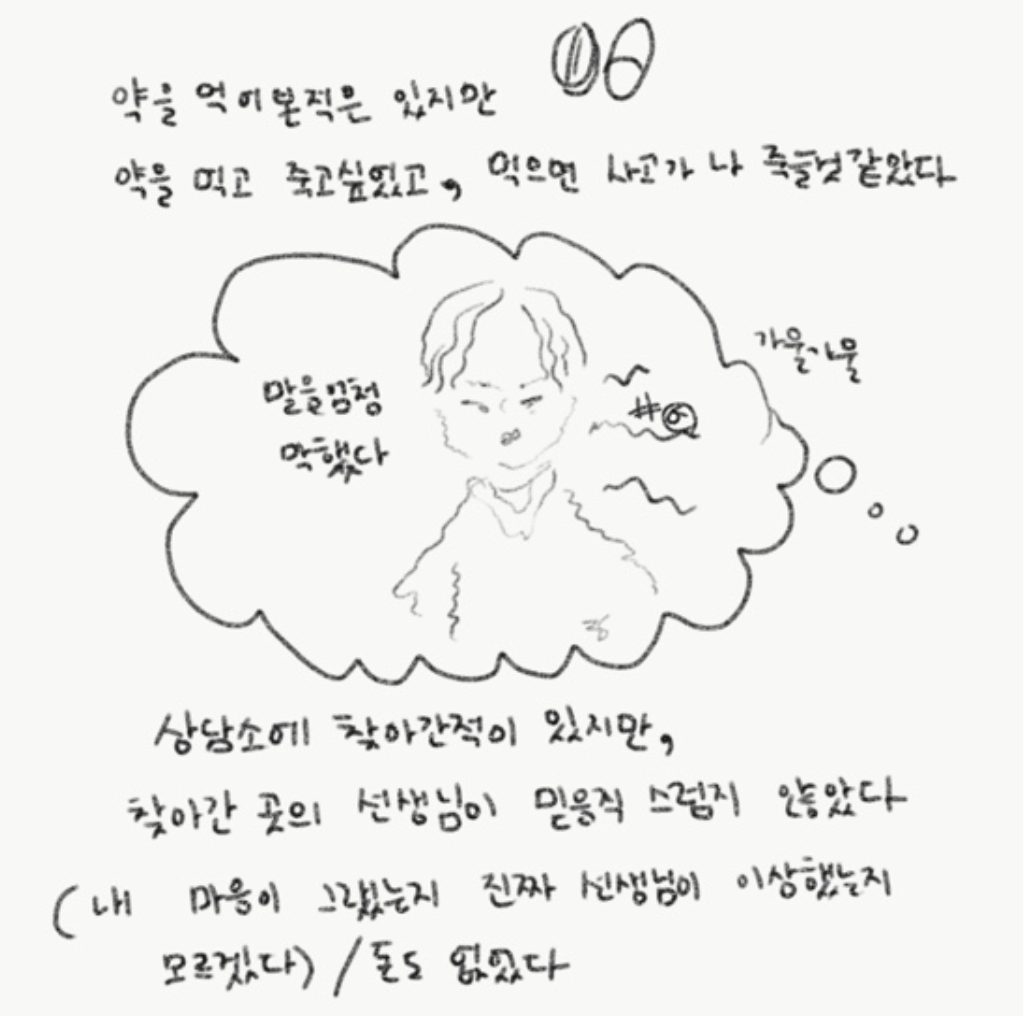 약을 먹어본적은 있지만
약을 먹고 죽고싶었고, 먹으면 사고가 나 죽을것같았다
가물가물
말을엄청
막했다
상담소에 찾아간적이 있지만,
찾아간 곳의 선생님이 믿음직 스럽지 않았다
(내 마음이 그랬는지 진짜 선생님이 이상했는지
모르겠다) / 돈도 없었다